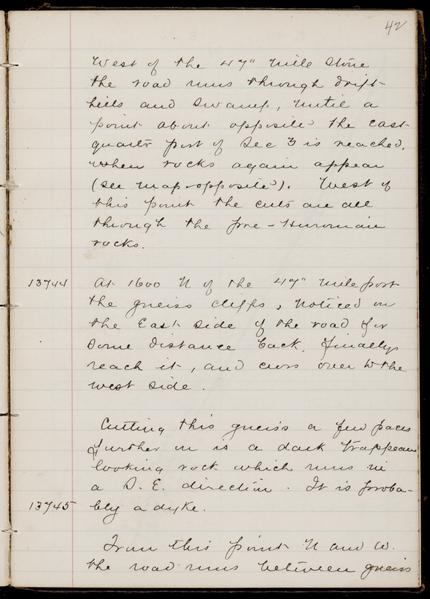 42
West of the 47" mile stone
the road runs through drift-
hills and swamp, until a
point about opposite the east
quarter post of Sec 3 is reached,
when rocks again appear
(see map opposite). West of
this point the cuts are all
through the pre-Huronian
rocks.
13744 At 1600 N of the 47" mile post
the gneiss cliffs, noticed on
the East side of the road for
some distance back, finally
reach it, and cross over to the
west side.
Cutting this gneiss a few paces
further on is a dark trappean
looking rock which runs in
a S. E. direction. It is proba-
13745 bly a dyke.
From this point N and W.
the road runs between gneiss